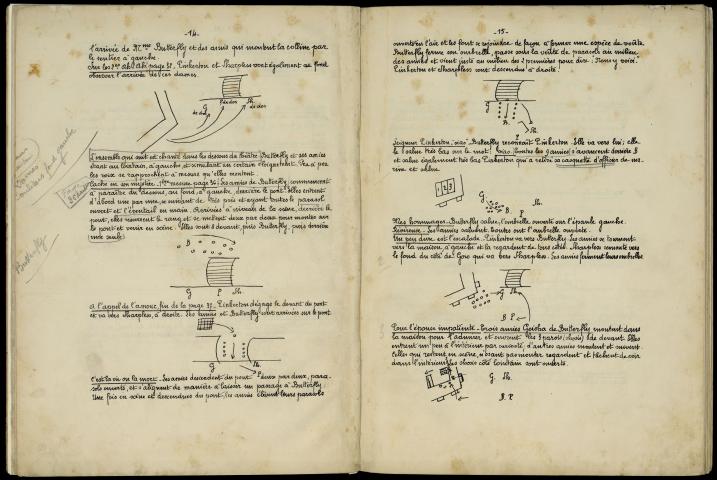 -14-
l'arrivée de Mme Butterfly et des amies qui montent la colline par
le sentier à gauche.
Sur les Ah! Ah! page 32, Pinkerton et Sharpless vont également au fond
observer l'arrivée de ces dames.
G
de dos
P de dos
Sh.
de dos
L'ensemble qui suit est chanté dans les dessous du théâtre, Butterfly et ses amies
étant au lointain, à gauche et simulant un certain éloignement. Peu à peu
les voix se rapprochent à mesure qu'elles montent.
mesure page 36, les amies de Butterfly commencent
à paraître du dessous, au fond, à gauche, derrière le pont. Elles entrent
d'abord une par une, se suivant de très près et ayant toutes le parasol
ouvert et l'éventail en main. Arrivées à niveau de la scène, derrière le
pont, elles resserrent le rang et se mettent deux par deux pour monter sur
le pont et venir en scène. Elles sont 8 devant, puis Butterfly, puis derrière
une seule.
Butterfly
B
G P Sh.
A l'appel de l'amour, fin de la page 37, Pinkerton dégage le devant du pont
et va vers Sharpless, à droite. Les amies et Butterfly sont arrivées sur le pont
G
Sh.
P
C'est la vie ou la mort. Les amies descendent du pont deux par deux, para-
sols ouverts, et s'alignent de manière à laisser un passage à Butterfly.
Une fois en scène et descendues du pont, les amies élèvent leurs parasols
-15-
ouverts en l'air et les font se rejoindre de façon à former une espèce de voûte.
Butterfly ferme son ombrelle, passe sous la voûte de parasols au milieu
des amies et vient juste au milieu des 2 premières pour dire: "Nous y voici."
Pinkerton et Sharpless ont descendu à droite.
G
B.
P
Sh.
Seigneur Pinkerton, salut. Butterfly reconnaît Pinkerton. Elle va vers lui; elle
le salue très bas sur le mot: salut, toutes les amies s'avancent derrière B
et salue également très bas Pinkerton qui a retiré sa casquette d'officier de ma-
rine et salue.
1 2 3
G
Sh.
B. P
Mes hommages. Butterfly salue, l'ombrelle ouverte sur l'épaule gauche.
Révérence. Les amies saluent, toutes ont l'ombrelle ouverte.
Un peu dure est l'escalade. Pinkerton va vers Butterfly. Les amies se tournent
vers la maison à gauche et la regardent de tous côtés. Sharpless remonte vers
le fond du côté de Goro qui va vers Sharpless. Les amies ferment leurs ombrelles
G Sh.
B P
Pour l'épouse impatiente. Trois amies Geisha de Butterfly montent dans
la maison pour l'admirer, et ouvrent les 3 parois (shosi) de devant. Elles
entrent un peu à l'intérieur par curiosité, d'autres amies montent et suivent
celles qui restent en scène, n'osant pas monter regardent et tâchent de voir
dans l'intérieur. Les shosis côté lointain sont ouverts.
G Sh.
B. P